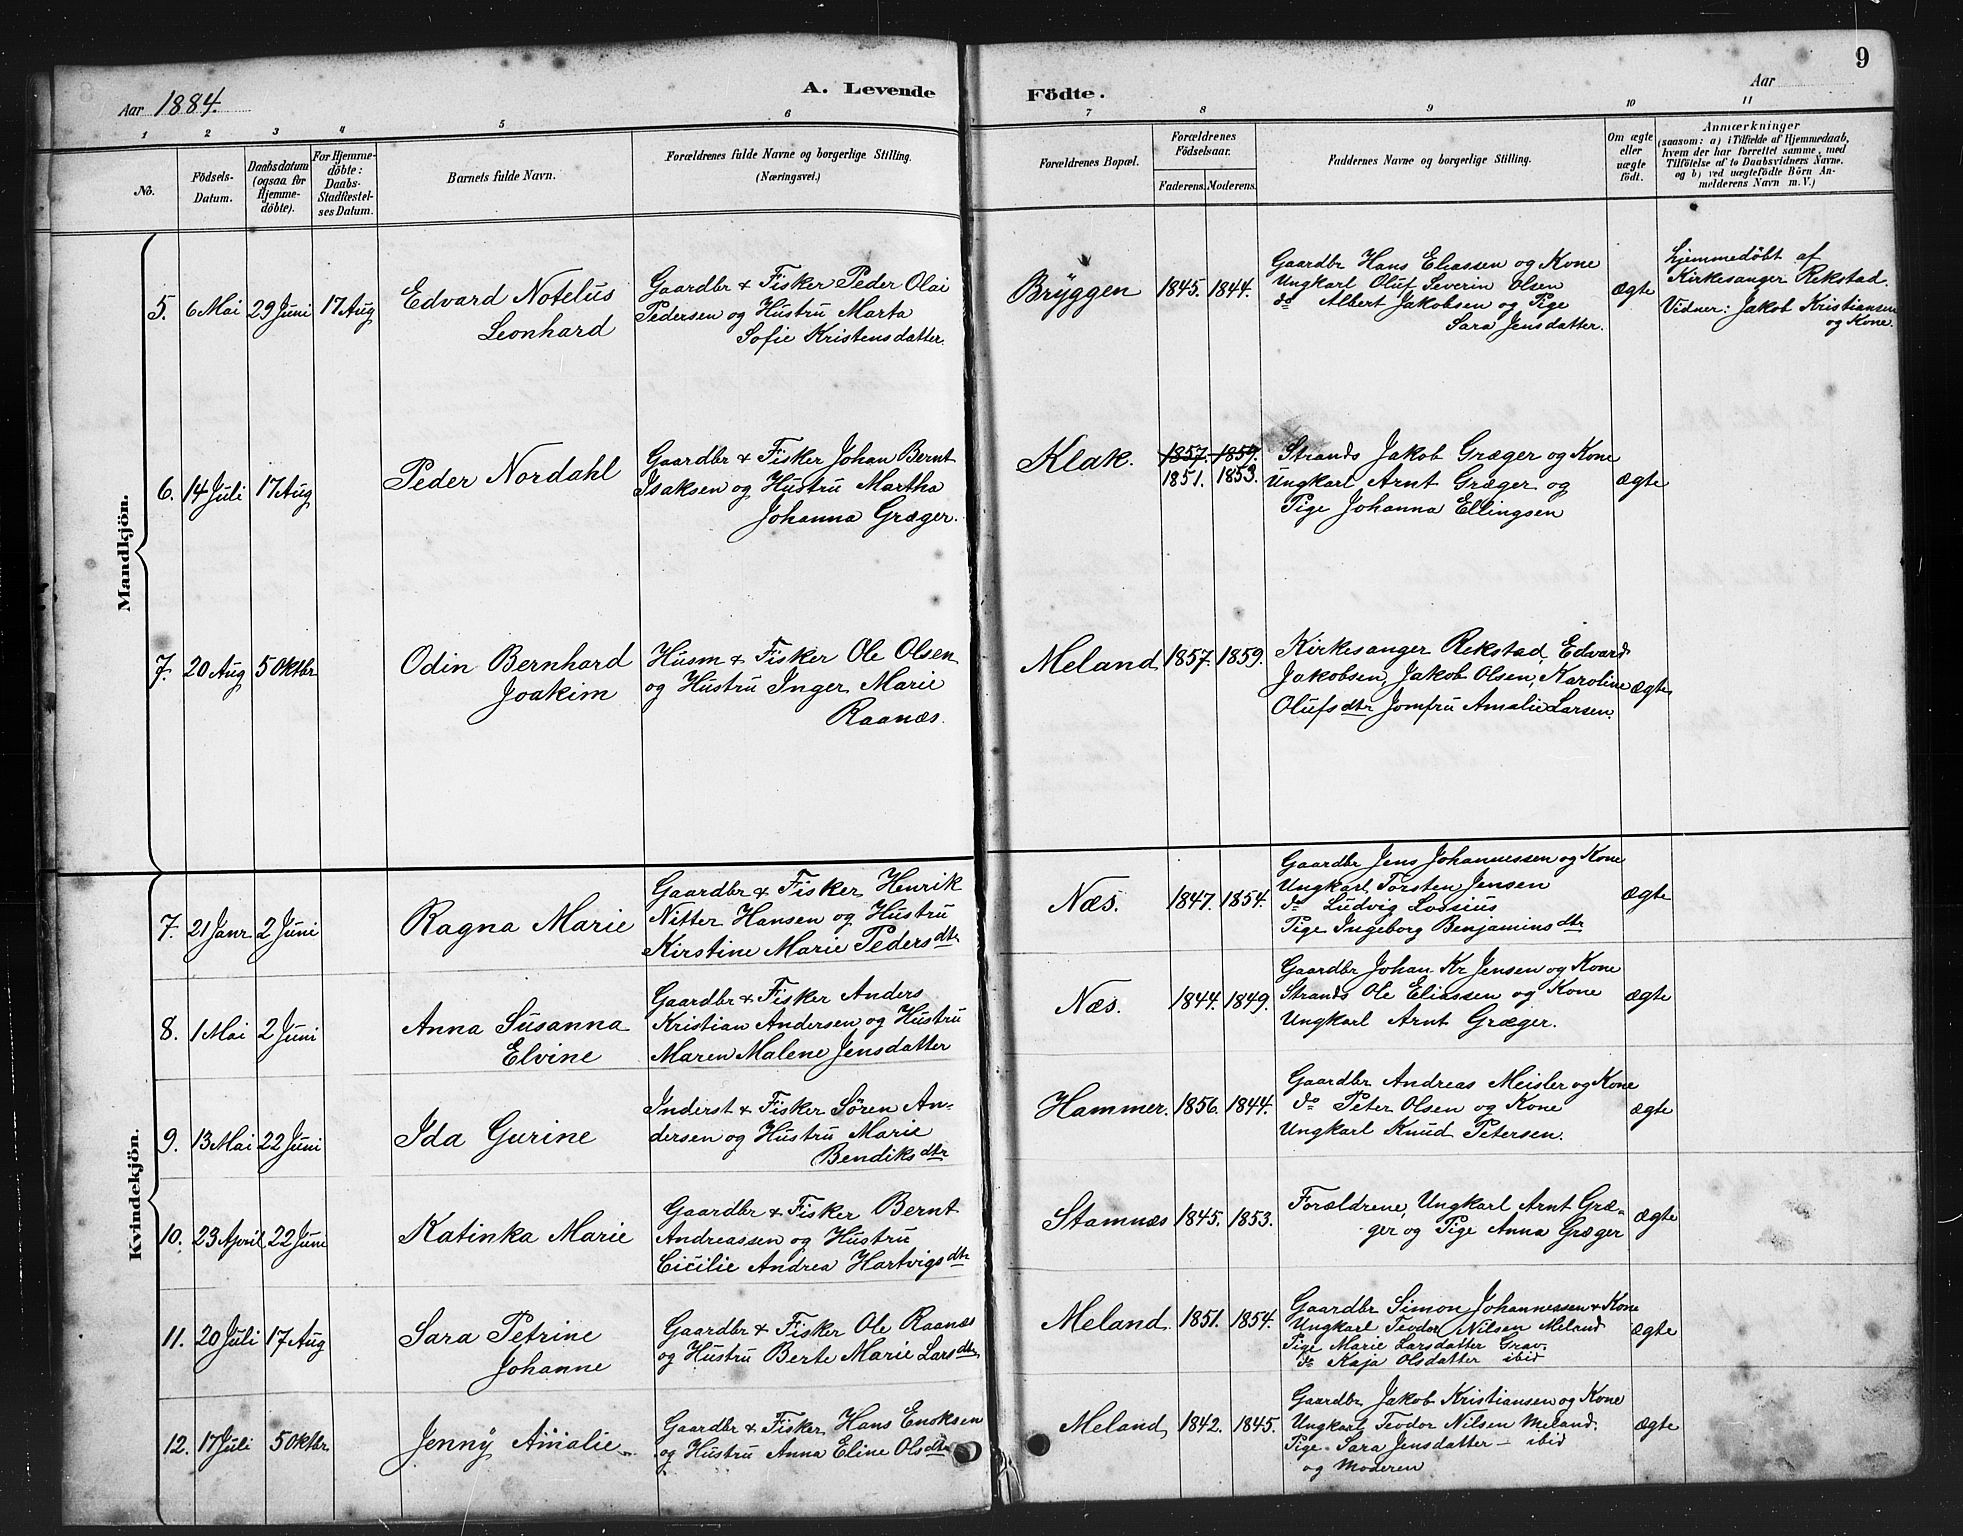 9
Aar 1884.
A. Levende Födte.
Aar
1 2 3 4 5 6 7 8 9 10 11
No.
Födsels-
Datum.
Daabsdatum
(ogsaa for
Hjemme-
döbte).
For Hjemme-
döbte:
Daabs-
Stadfæstel-
ses Datum.
Barnets fulde Navn.
Forældrenes fulde Navne og borgerlige Stilling.
(Næringsvei.)
Forældrenes Bopæl.
Forældrenes
Födselsaar.
Faderens. Moderens.
Faddernes Navne og borgerlige Stilling.
Om ægte
eller
uægte
født.
Anmærkninger
(saasom: a) i Tilfælde af Hjemmedaab,
hvem der har forrettet samme, med
Tilföielse af to Daabsvidners Navne.
og b) ved uægtefödte Börn An-
melderens Navn m. V.)
Mandkjön.
5. 6 Mai 29 Juni 17 Aug
Edvard Notelus
Leonhard
Gaardbr & Fisker Peder Olai
Pedersen og Hustru Marta
Sofie Kristensdatter.
Bryggen 1845. 1844.
Gaardbr Hans Eliassen og Kone
Ungkarl Oluf Severin Olsen
do Albert Jakobsen og Pige
Sara Jensdatter.
ægte
Hjemmedöbt af
Kirkesanger Rekstad.
Vidner: Jakob Kristiansen
og Kone.
6. 14 Juli 17 Aug
Peder Nordahl
Gaardbr & Fisker Johan Bernt
Isaksen og Hustru Martha
Johanna Græger.
Klak. 1857. 1859.
1851. 1853.
Strands Jakob Græger og Kone
Ungkarl Arnt Græger og
Pige Johanna Ellingsen
ægte
7. 20 Aug 5 Oktbr
Odin Bernhard
Joakim
Husm & Fisker Ole Olsen
og Hustru Inger Marie
Raanæs.
Meland 1857. 1859.
Kirkesanger Rekstad, Edvard
Jakobsen, Jakob Olsen, Karoline
Olufsdtr Jomfru Amalie Larsen.
ægte
Kvindekjön.
7. 21 Janr 2 Juni
Ragna Marie
Gaardbr & Fisker Henrik
Nitter Hansen og Hustru
Kirstine Marie Pedersdtr
Næs. 1847. 1854.
Gaardbr Jens Johannessen og Kone
Ungkarl Torsten Jensen
do Ludvig Lossius
Pige Ingeborg Benjaminsdtr
ægte
8. 1 Mai 2 Juni
Anna Susanna
Elvine
Gaardbr & Fisker Anders
Kristian Andersen og Hustru
Maren Malene Jensdatter
Næs. 1844. 1849.
Gaardbr Johan Kr Jensen og Kone
Strands Ole Eliassen og Kone
Ungkarl Arnt Græger.
ægte
9. 13 Mai 22 Juni
Ida Gurine
Inderst & Fisker Sören An-
dersen og Hustru Marie
Bendiksdtr
Hammer. 1856. 1844.
Gaardbr Andreas Meisler og Kone
do Peter Olsen og Kone
Ungkarl Knud Petersen.
ægte
10. 23 April 22 Juni
Katinka Marie
Gaardbr & Fisker Bernt
Andreassen og Hustru
Cicilie Andrea Hartvigsdtr
Stamnæs 1845. 1853.
Forældrene, Ungkarl Arnt Græ-
ger og Pige Anna Græger
ægte
11. 20 Juli 17 Aug
Sara Petrine
Johanne
Gaardbr & Fisker Ole Raanæs
og Hustru Berte Marie Larsdtr
Meland 1851. 1854.
Gaardbr Simon Johannessen & Kone
Ungkarl Teodor Nilsen Meland
Pige Marie Larsdatter Grav.
do Kaja Olsdatter ibid
ægte
12. 17 Juli 5 Oktbr
Jenny Amalie
Gaardbr & Fisker Hans Enoksen
og Hustru Anna Eline Olsdtr
Meland 1842. 1845.
Gaardbr Jakob Kristiansen og Kone
Ungkarl Teodor Nilsen Meland.
Pige Sara Jensdatter - ibid
og Moderen
ægte